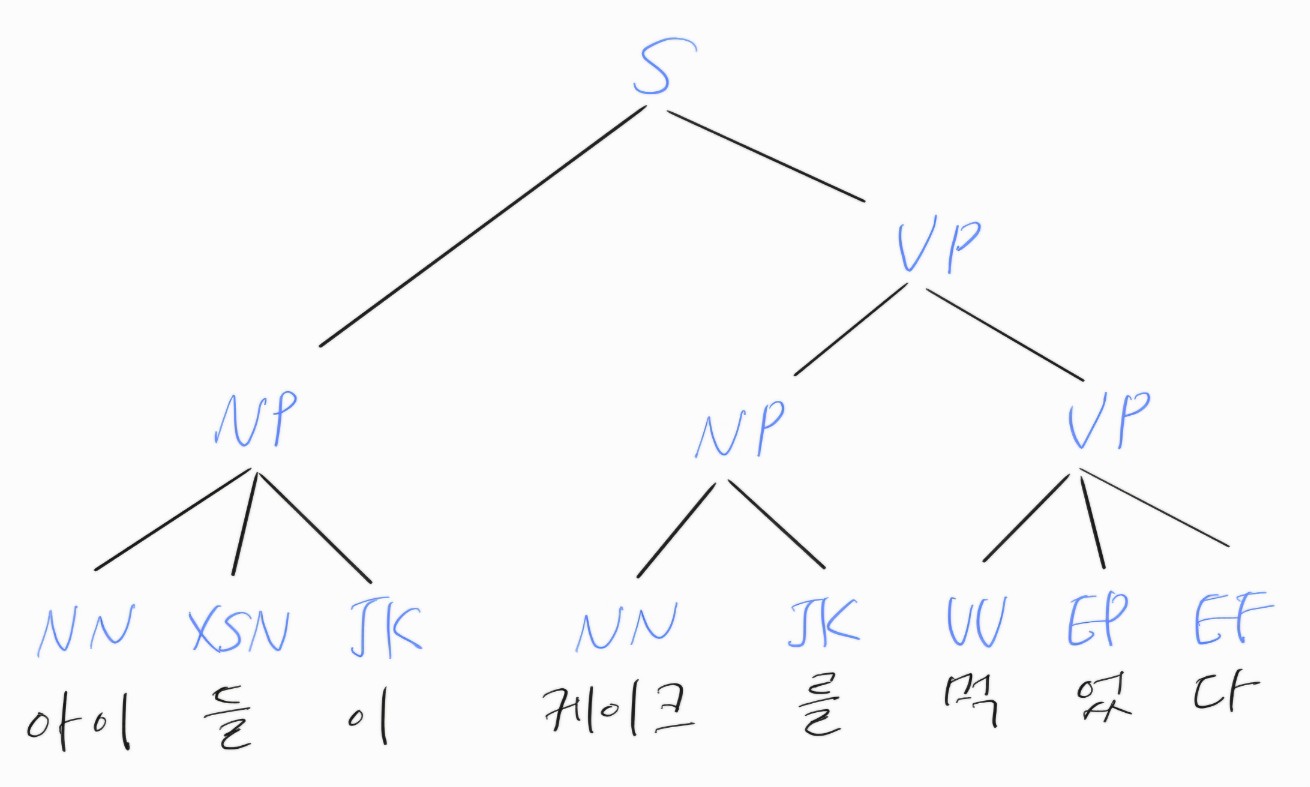 S
VP
NP NP VP
NN XSN JK NN JK VV EP EF
아이 들 이 케이크 를 먹 었 다